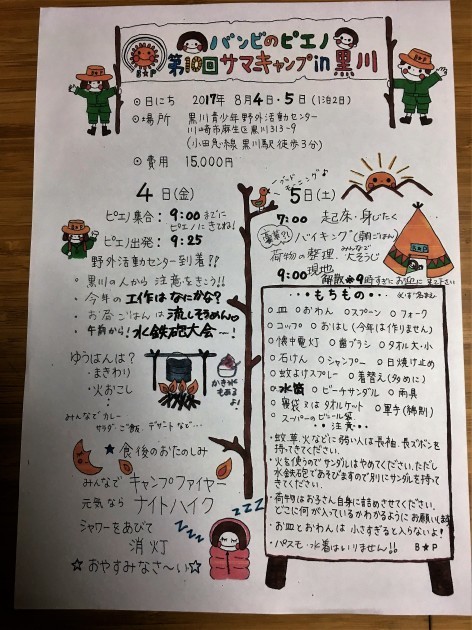 バンビのピエノ
第10回サマーキャンプin黒川
B★P
◎日にち 2017年 8月4日・5日(1泊2日)
◎場所 黒川青少年野外活動センター
川崎市麻生区黒川313-9
(小田急線 黒川駅 徒歩3分)
◎費用 15,000円
4日(金)
ピエノ集合: 9:00までに
ピエノにきてね!
ピエノ出発: 9:25
野外活動センター到着??
・黒川の人から注意をきこう!!
・今年の工作はなにかな?
・お昼ごはんは流しそうめん
・午前から!水鉄砲大会〜!
ゆうはんは?
・まきわり
・火おこし
かき氷もあるよ!
みんなでカレー
サラダ ご飯 デザートなど…
★食後のおたのしみ
みんなでキャンプファイヤー
元気ならナイトハイク
シャワーをあびて
消灯
☆おやすみなさ〜い☆
zzz
zzz
グッドモーニングよ
5日(土)
7:00 起床・身じたく
バイキング(朝ごはん)
荷物の整理 みんなで大そうじ
9:00 現地解散
B★P
・・もちもの・・
○皿 ○おわん ○スプーン ○フォーク
○コップ ○おはし(今年は作りません)
○懐中電灯 ○歯ブラシ ○タオル大・小
○石けん ○シャンプー ○日焼け止め
○蚊よけスプレー ○着替え(多めに)
○水筒 ○ビーチサンダル ○雨具
○寝袋又はタオルケット ○軍手(綿制)
○スーパーのビニール袋
・・注意・・
・蚊、草、火などに弱い人は長袖、長ズボンを
持ってきてください。
・火を使うのでサンダルはやめてください、ただし
水鉄砲であそびますので別にサンダルを持って
きてください。
・荷物はお子さん自身に詰めさせてください、
どこに何が入っているかわかるようにお願いします
・お皿とおわんは小さすぎると入らないよ!
・パスモ・水着はいりません!! B★P